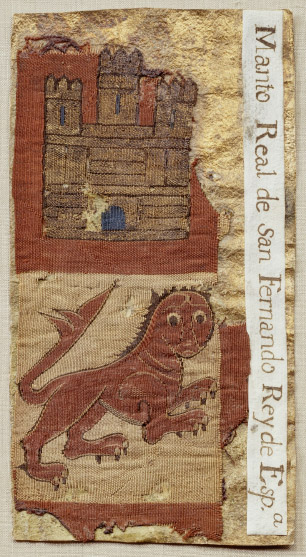 Manto Real de San Fernando Rey de Esp.a